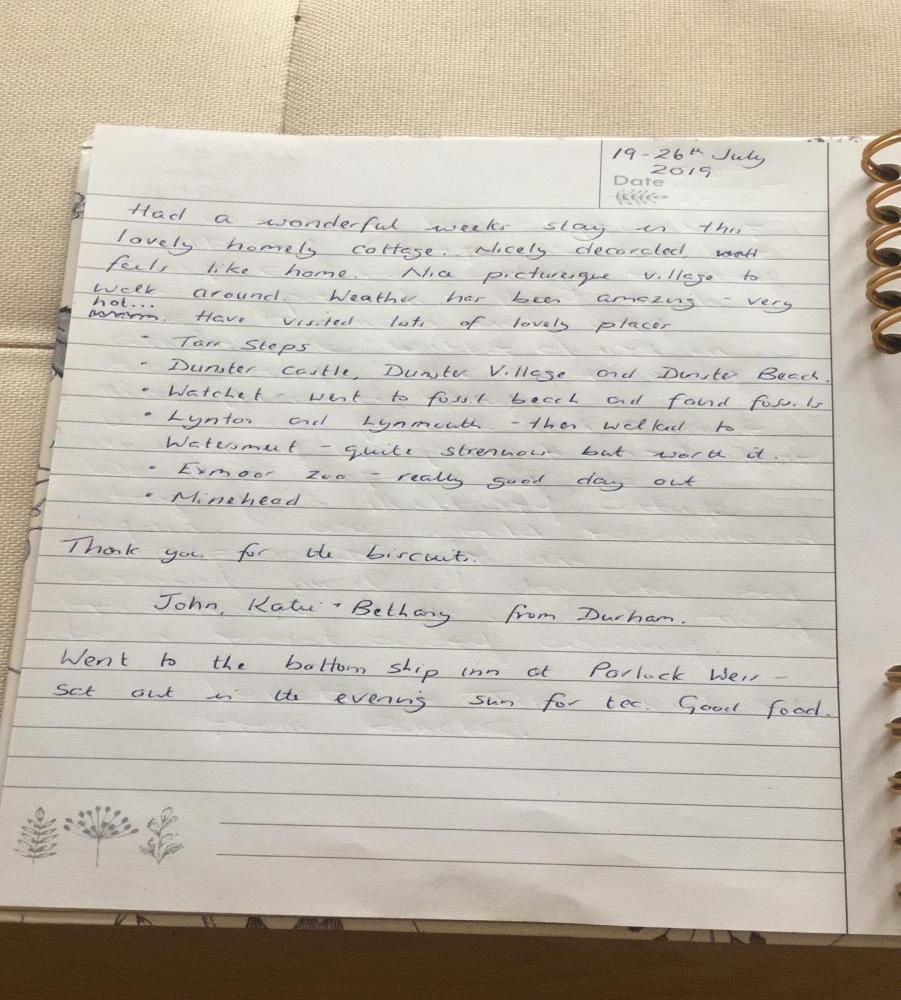 19-26th July
2019
Date
Had a wonderful weeks stay in this
lovely homely cottage. Nicely decorated,
feels like home. Nice picturesque village to
walk around. Weather has been amazing - very
hot...
Have visited lots of lovely places
· Tarr Steps
· Dunster castle, Dunster Village and Dunster Beach.
· Watchet - went to fossil beach and found fossils
· Lynton and Lynmouth - then walked to
Watersmeet - quite strenuous but worth it.
· Exmoor zoo - really good day out
· Minehead
Thank you for the biscuits.
John, Katie + Bethany from Durham.
Went to the bottom ship inn at Porlock Weir -
sat out in the evening sun for tea. Good food.